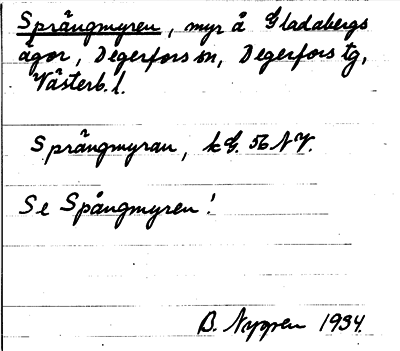 Sprängmyren, myr å Gladabergs
ägor, Degerfors sn, Degerfors tg,
Västerb. l.
Sprängmyran, kG. 56 NV.
Se Spångmyren!
B. Nygren 1934.